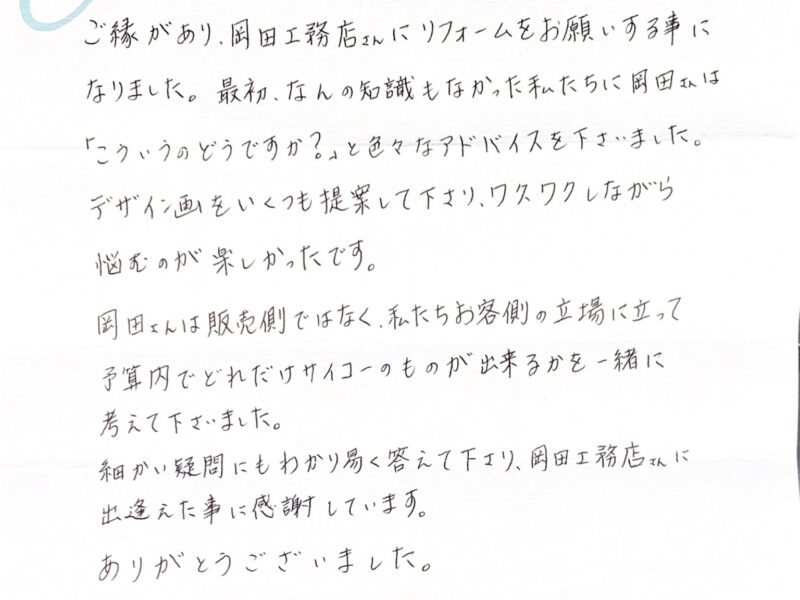 ご縁があり、岡田工務店さんにリフォームをお願いする事に
なりました。最初、なんの知識もなかった私たちに岡田さんは
「こういうのどうですか?」と色々なアドバイスを下さいました。
デザイン画をいくつも提案して下さり、ワクワクしながら
悩むのが楽しかったです。
岡田さんは販売側ではなく、私たちお客側の立場に立って
予算内でどれだけサイコーのものが出来るかを一緒に
考えて下さいました。
細かい疑問にもわかり易く答えて下さり、岡田工務店さんに
出逢えた事に感謝しています。
ありがとうございました。